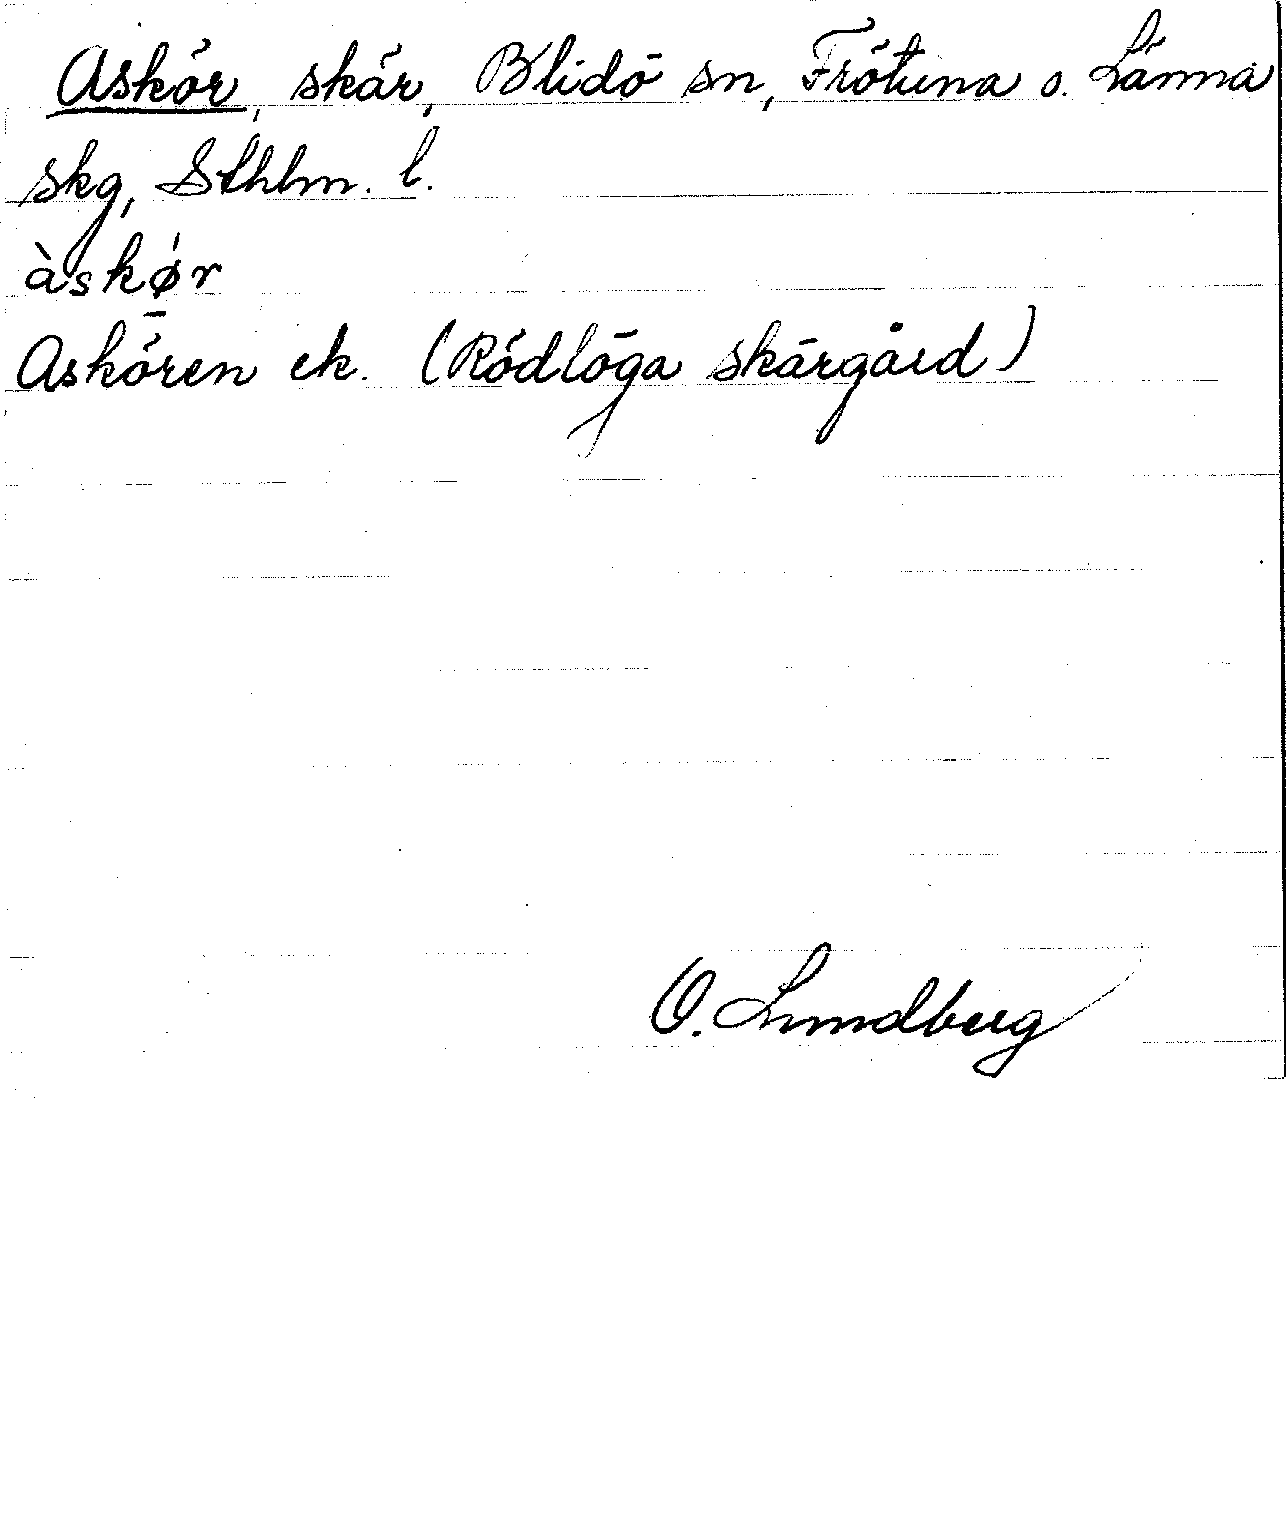 Askör, skär, Blidö sn, Frötuna o. Länna
skg, Sthlm. l.
àskø̱r
Askören ek. (Rödlöga skärgård)
O. Lundberg